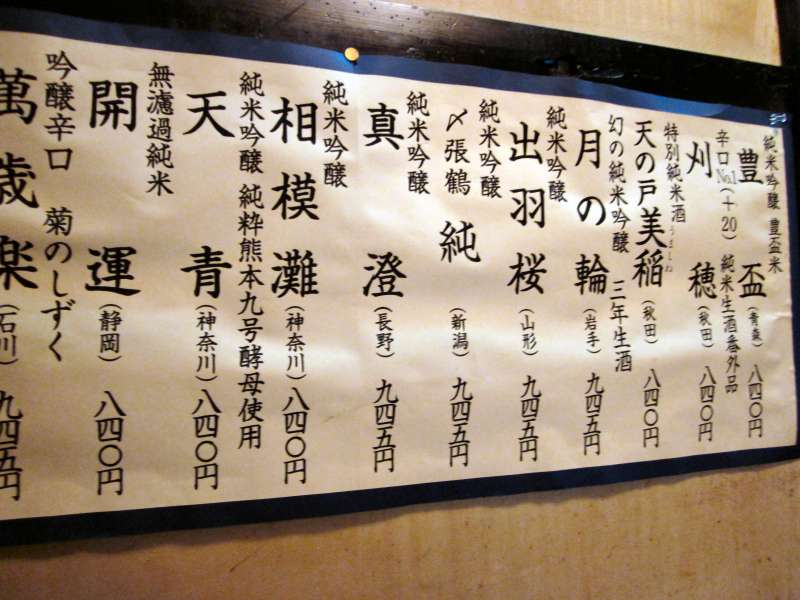 純米吟醸 豊盃米
豊盃(青森)八四〇円
辛口No.1(+20) 純米生酒番外品
刈穂(秋田)八四〇円
特別純米酒
うましね
天の戸美稲(秋田)八四〇円
幻の純米吟醸 三年生酒
月の輪(岩手)九四五円
純米吟醸
出羽桜(山形)九四五円
純米吟醸
〆張鶴 純(新潟)九四五円
純米吟醸
真澄(長野)九四五円
純米吟醸
相模灘(神奈川)八四〇円
純米吟醸 純粋熊本九号酵母使用
天青(神奈川)八四〇円
無濾過純米
開運(静岡)八四〇円
吟醸辛口 菊のしずく
萬歳楽(石川)九四五円